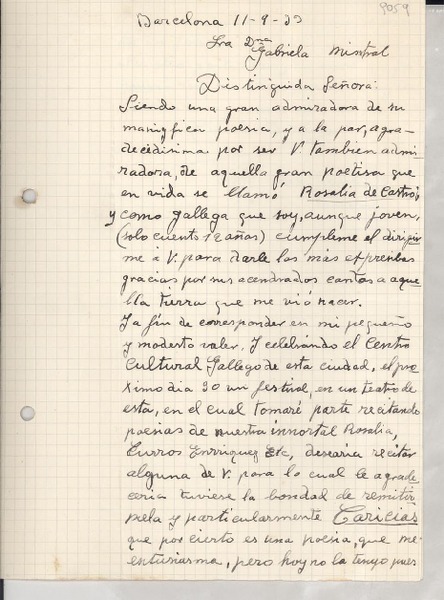 9059
Barcelona 11-9-33
Sra Dña
Gabriela Mistral
Distinguida Señora:
Siendo una gran admiradora de su
magnifica poesia, y a la par, agra-
decidisima por ser V. tambien admi-
radora, de aquella gran poetisa que
en vida se llamó Rosalia de Castro;
y como gallega que soy, aunque joven,
(solo cuento 12 años) cumpleme el dirigir
me á V. para darle las más expresivas
gracias por sus acendrados cantos a aque
lla tierra que me vió nacer.
Y a fin de corresponder en mi pequeño
y modesto valer. Y celebrando el Centro
Cultural Gallego de esta ciudad, el pro
ximo dia 30 un festival, en un teatro de
esta, en el cual tomaré parte recitando
poesias de nuestra inmortal Rosalia,
Curros Enrriquez etc, desearia recitar
alguna de V. para lo cual le agrade
ceria tuviese la bondad de remitir
mela y particularmente Caricias
que por cierto es una poesia, que me
entusiasma, pero hoy no la tengo pues